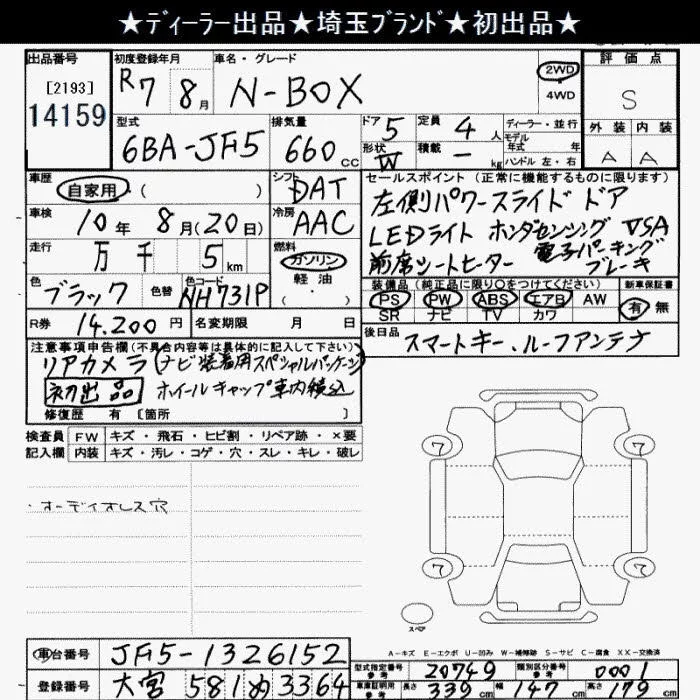 ★ディーラー出品★埼玉ブランド★初出品★
出品番号 初度登録年月 車名・グレード 評価点
[2193] R7年 8月 N-BOX 2WD S
14159 4WD
型式 排気量 ドア 5 定員 4人 ディーラー・並行 外装 内装
6BA-JF5 660cc 形状 W 積載 - kg モデル年式 年 ハンドル 左・右 A A
車歴 シフト セールスポイント(正常に機能するものに限ります)
自家用 ( ) DAT 左側パワースライドドア
車検 冷房 LEDライト ホンダセンシング VSA
10年 8月(20日) AAC 前席シートヒーター 電子パーキング
走行 燃料 ブレーキ
万 千 5km ガソリン
軽油
( ・ )
色 色替 色コード 装備品(純正品に限り○をつけてください) 新車保証書
ブラック NH731P PS PW ABS エアB AW 有 無
SR ナビ TV カワ
R券 14,200円 名変期限 月 日 後日品
スマートキー、ルーフアンテナ
注意事項申告欄(不具合内容等は具体的に記入して下さい)
リアカメラ (ナビ装着用スペシャルパッケージ)
初出品 ホイールキャップ車内積込
修復歴 有 〔箇所 〕
検査員 FW キズ・飛石・ヒビ割・リペア跡・×要
記入欄 内装 キズ・汚レ・コゲ・穴・スレ・キレ・破レ
・オーディオレス穴
7 7
7 7
スペア
A-キズ E-エクボ U-凹み W-補修跡 S-サビ C-腐食 XX-交換済
車台番号 JF5-1326152 型式指定番号 参考 20749 類別区分番号 参考 0001
登録番号 大宮 581 め 3364 車庫証明用 参考 長さ 339cm 幅 147cm 高さ 179cm